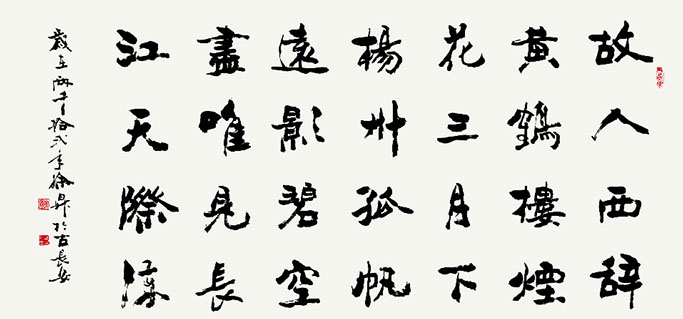 故人西辞
黄鶴樓煙
花三月下
楊州孤帆
遠影碧空
盡唯見長
江天際流
歲在兩千拾弍年徐昇於古長安